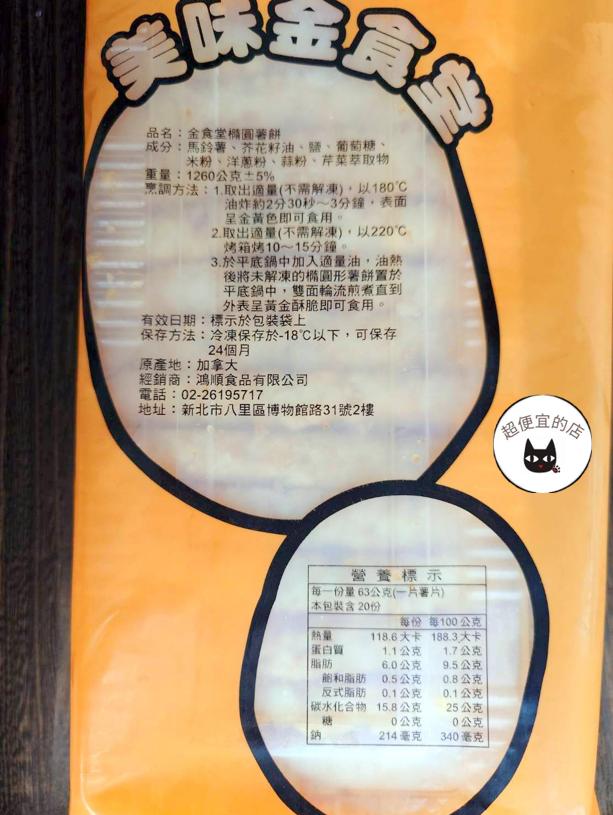 美味金食堂
品名：金食堂橢圓薯餅
成分：馬鈴薯、芥花籽油、鹽、葡萄糖、
米粉、洋蔥粉、蒜粉、芹菜萃取物
重量：1260公克±5%
烹調方法：1.取出適量(不需解凍)，以180℃
油炸約2分30秒～3分鐘，表面
呈金黃色即可食用。
2.取出適量(不需解凍)，以220℃
烤箱烤10～15分鐘。
3.於平底鍋中加入適量油，油熱
後將未解凍的橢圓形薯餅置於
平底鍋中，雙面輪流煎煮直到
外表呈黃金酥脆即可食用。
有效日期：標示於包裝袋上
保存方法：冷凍保存於-18℃以下，可保存
24個月
原產地：加拿大
經銷商：鴻順食品有限公司
電話：02-26195717
地址：新北市八里區博物館路31號2樓
超便宜的店
營養標示
每一份量 63公克(一片薯片)
本包裝含 20份
每份 每100公克
熱量 118.6大卡 188.3大卡
蛋白質 1.1公克 1.7公克
脂肪 6.0公克 9.5公克
飽和脂肪 0.5公克 0.8公克
反式脂肪 0.1公克 0.1公克
碳水化合物 15.8公克 25公克
糖 0公克 0公克
鈉 214毫克 340毫克